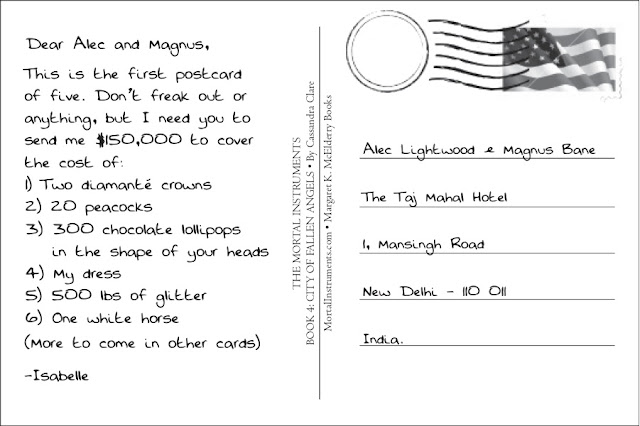 Dear Alec and Magnus,
This is the first postcard
of five. Don't freak out or
anything, but I need you to
send me $150,000 to cover
the cost of:
1) Two diamanté crowns
2) 20 peacocks
3) 300 chocolate lollipops
in the shape of your heads
4) My dress
5) 500 lbs of glitter
6) One white horse
(More to come in other cards)
-Isabelle
THE MORTAL INSTRUMENTS
BOOK 4: CITY OF FALLEN ANGELS • By Cassandra Clare
MortalInstruments.com • Margaret K. McElderry Books
Alec Lightwood & Magnus Bane
The Taj Mahal Hotel
1, Mansingh Road
New Delhi - 110 011
India.